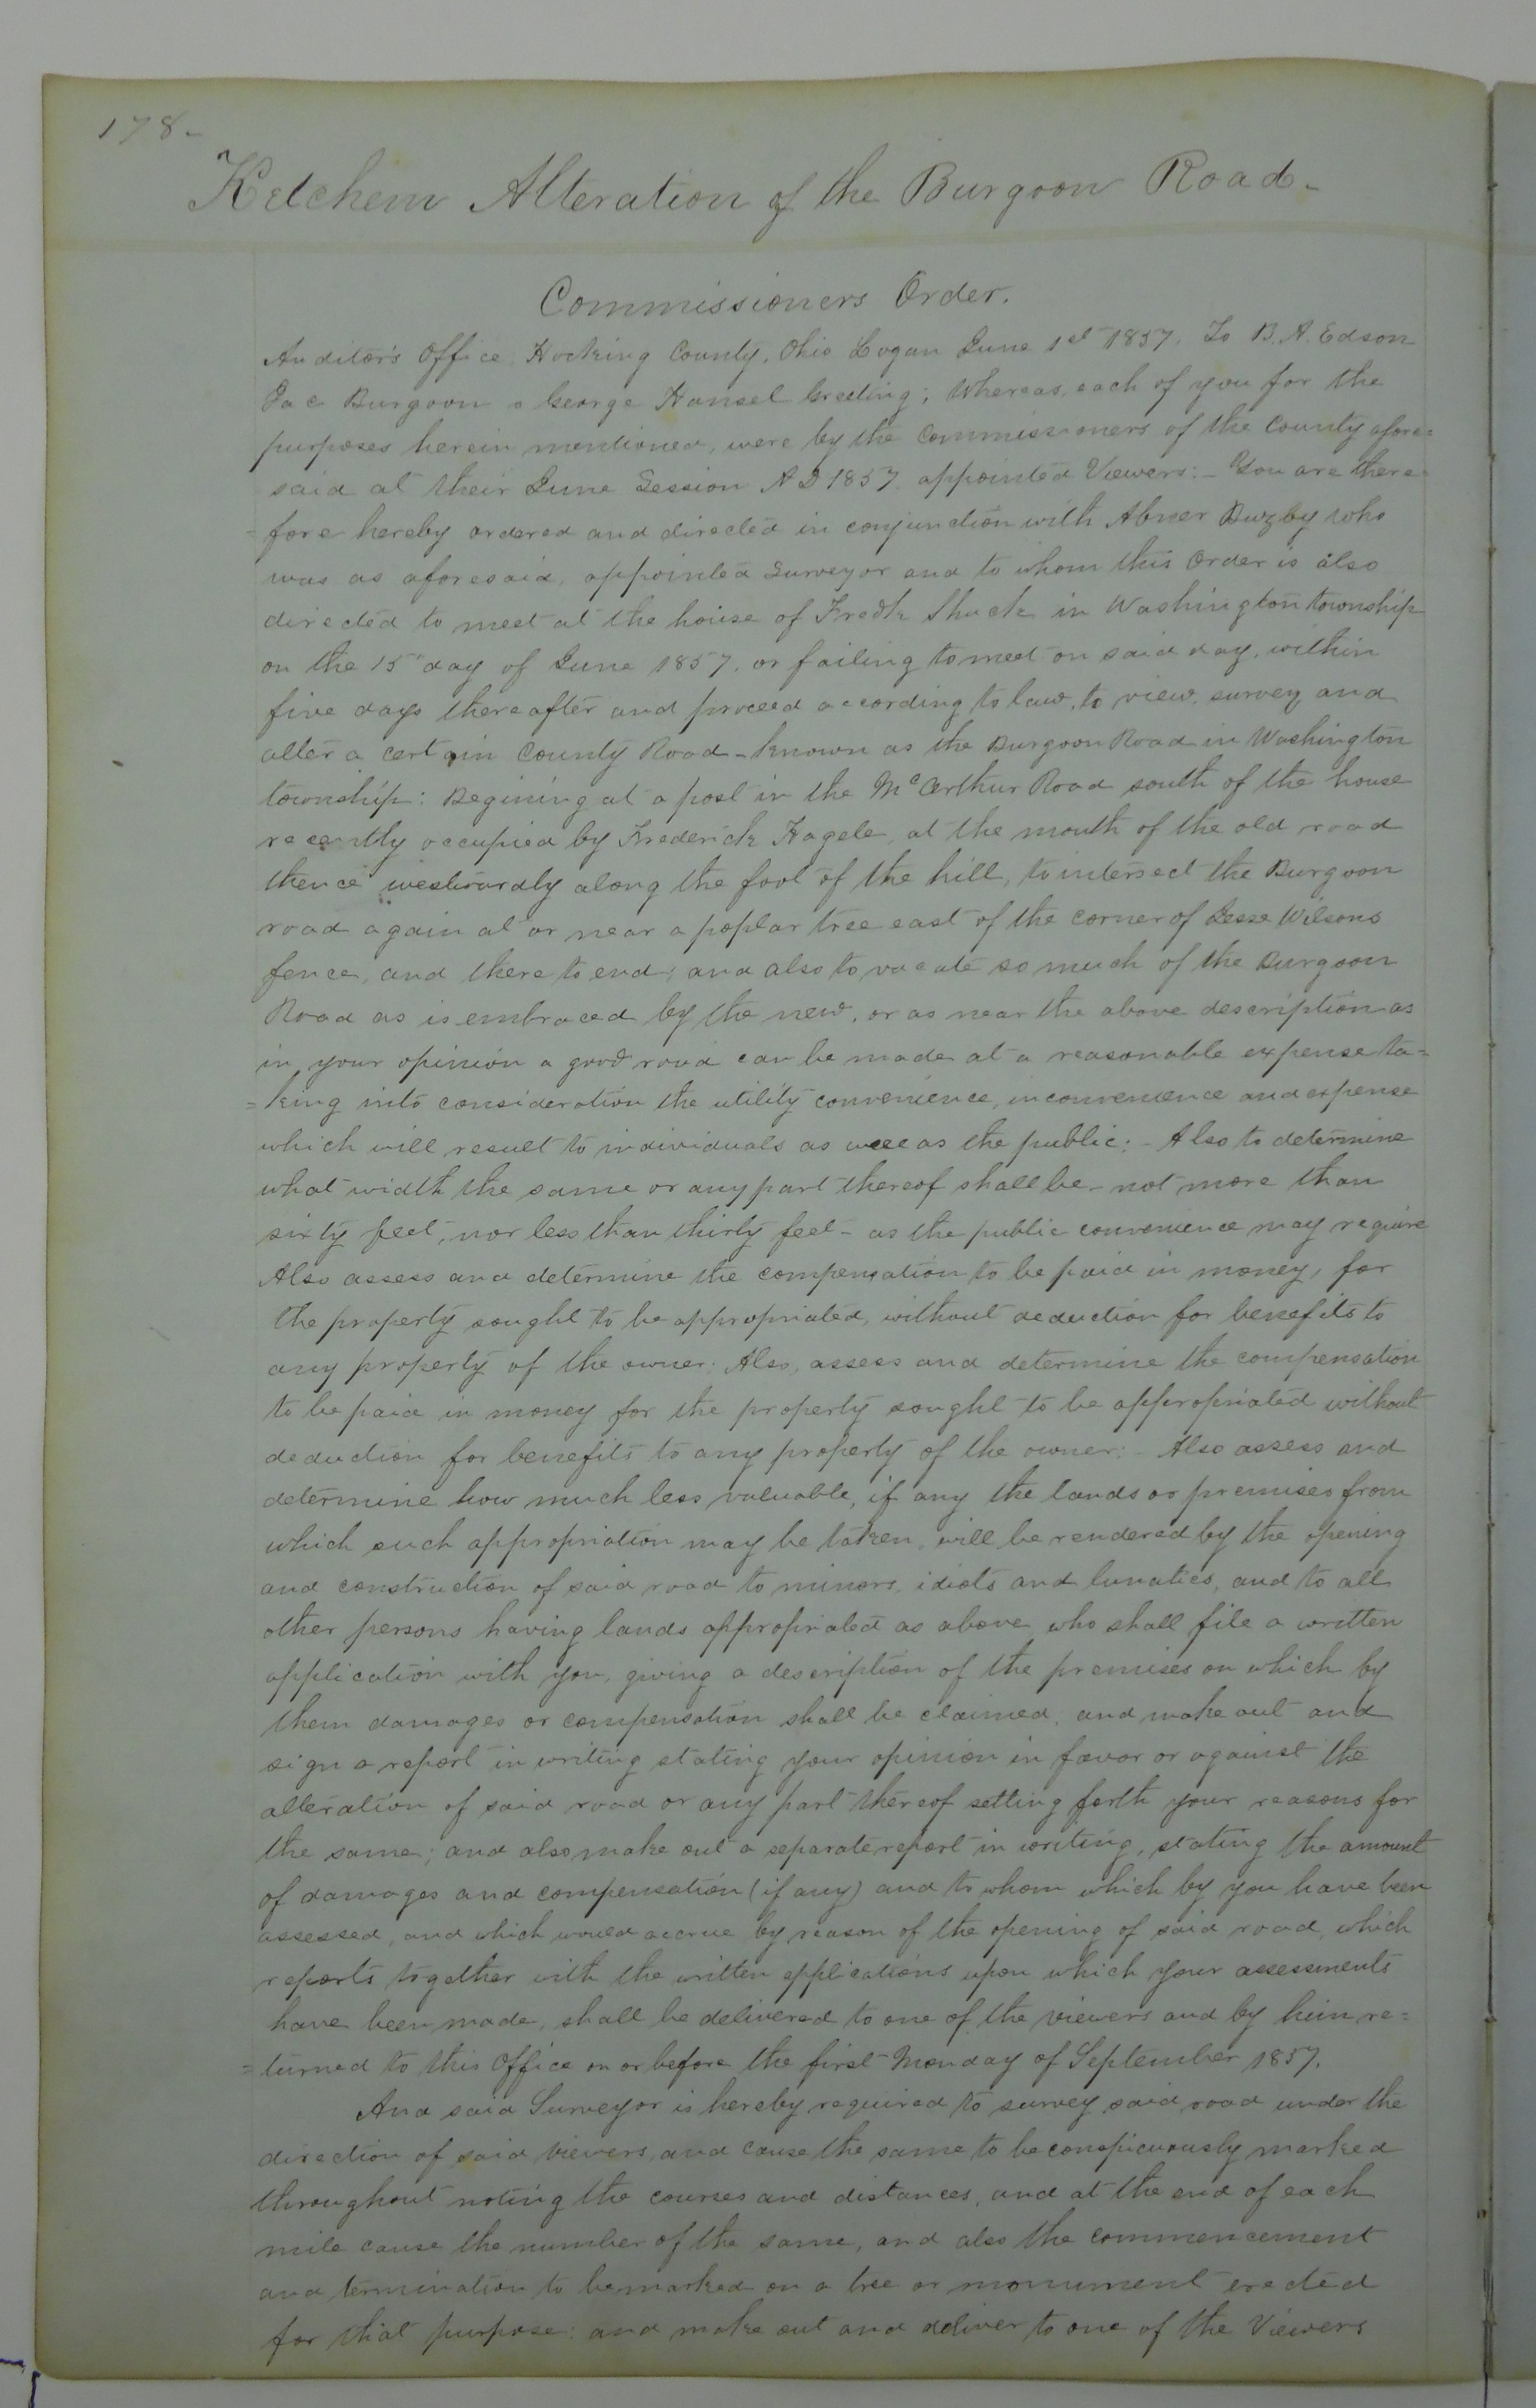 178-
Ketchem Alteration of the Burgoon Road-
Commissioners Order.
Auditor's Office. Hocking County, Ohio Logan June 1st 1857. To B. A. Edson
Jac Burgoon & George Hansel Greeting; Whereas, each of you for the
purposes herein mentioned, were by the Commissioners of the County afore=
said at their June Session A D 1857 appointed Viewers:- You are there
=fore hereby ordered and directed in conjunction with Abner Buzby who
was as aforesaid, appointed Surveyor and to whom this Order is also
directed to meet at the house of Fredk Shuck in Washington township
on the 15" day of June 1857, or failing to meet on said day, within
five days thereafter and proceed according to law, to view, survey, and
alter a certain County Road - known as the Burgoon Road in Washington
township: Begining at a post in the Mc Arthur Road south of the house
recently occupied by Frederick Hagele, at the mouth of the old road
thence westwardly along the foot of the hill, to intersect the Burgoon
road again at or near a poplar tree east of the corner of Jesse Wilsons
fence, and there to end; and also to vacate so much of the Burgoon
Road as is embraced by the new, or as near the above description as
in your opinion a good road can be made at a reasonable expense ta=
=king into consideration the utility convenience, inconvenience and expense
which will result to individuals as well as the public:- Also to determine
what width the same or any part thereof shall be- not more than
sixty feet, nor less than thirty feet- as the public convenience may require
Also assess and determine the compensation to be paid in money, for
the property sought to be appropriated, without deduction for benefits to
any property of the owner: Also, assess and determine the compensation
to be paid in money for the property sought to be appropriated without
deduction for benefits to any property of the owner:- Also assess and
determine how much less valuable, if any the lands or premises from
which such appropriation may be taken, will be rendered by the opening
and construction of said road to minors, idiots and lunatics, and to all
other persons having lands appropriated as above who shall file a written
application with you, giving a description of the premises on which by
them damages or compensation shall be claimed, and make out and
sign a report in writing stating your opinion in favor or against the
alteration of said road or any part thereof setting forth your reasons for
the same; and also make out a separate report in writing, stating the amount
of damages and compensation (if any) and to whom which by you have been
assessed, and which would accrue by reason of the opening of said road, which
reports together with the written applications upon which your assessments
have been made, shall be delivered to one of the viewers and by him re=
=turned to this Office on or before the first Monday of September 1857.
And said Surveyor is hereby required to survey said road under the
direction of said Viewers, and cause the same to be conspicuously marked
throughout noting the courses and distances, and at the end of each
mile cause the number of the same, and also the commencement
and termination to be marked on a tree or monument erected
for that purpose: and make out and deliver to one of the Viewers